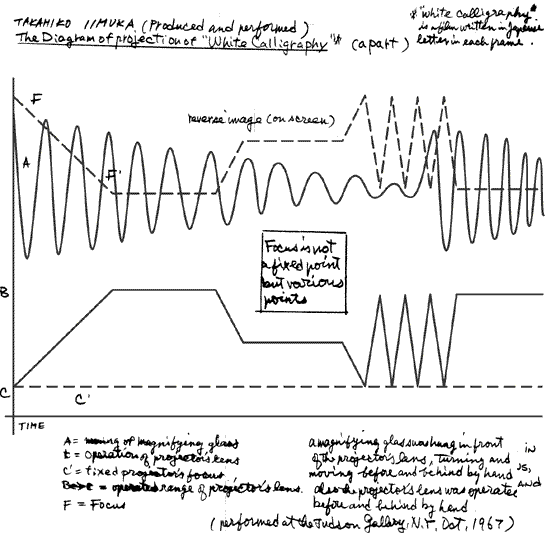 TAKAHIKO IIMUKA (Produced and performed)
The Diagram of projection of "White Calligraphy"* (apart)
*"White Calligraphy"
is a film written in Japanese
letter in each frame.
F
reverse image (on screen)
A
F'
Focus is not
a fixed point
but various
points
B
C
C'
TIME
A = moving of magnifying glass
t = operation of projector's lens
C' = fixed projector's focus
= operated range of projector's lens.
F = Focus
a magnifying glass was hang in front
of the projector's lens, turning and
moving before and behind by hand
also the projector's lens was operated
before and behind by hand.
IN
AND
(performed at the Judson Gallery, N.Y, Oct, 1967)